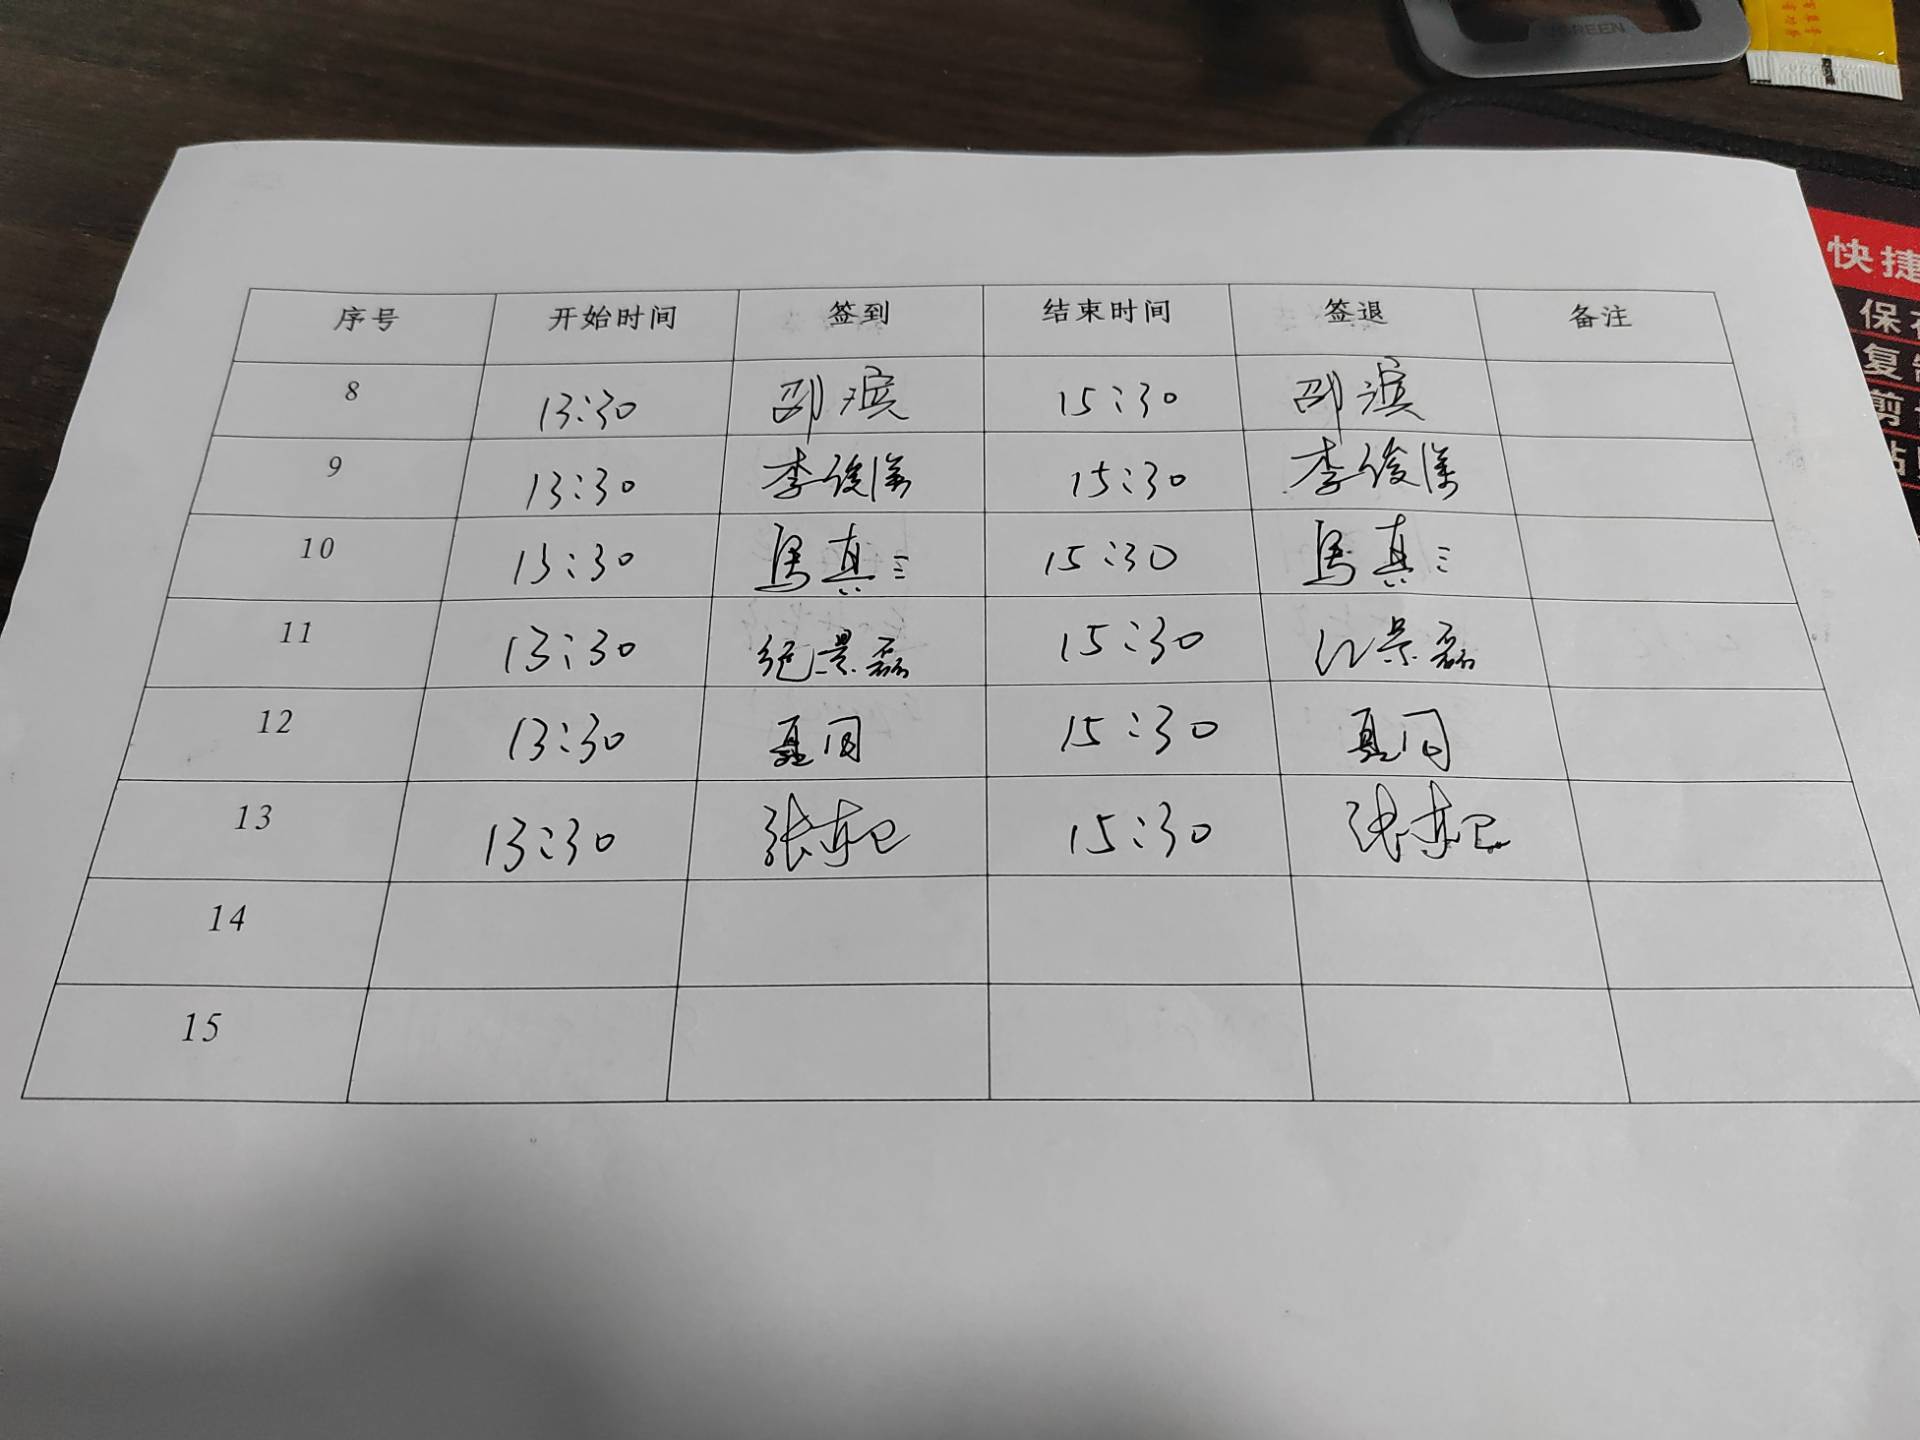 UGREEN
快捷
保存
复制
剪
序号 开始时间 签到 结束时间 签退 备注
8 13:30 邵滨 15:30 邵滨
9 13:30 李俊 15:30 李俊
10 13:30 马真三 15:30 马真三
11 13:30 纪景磊 15:30 纪景磊
12 13:30 夏同 15:30 夏同
13 13:30 张 15:30 张
14
15